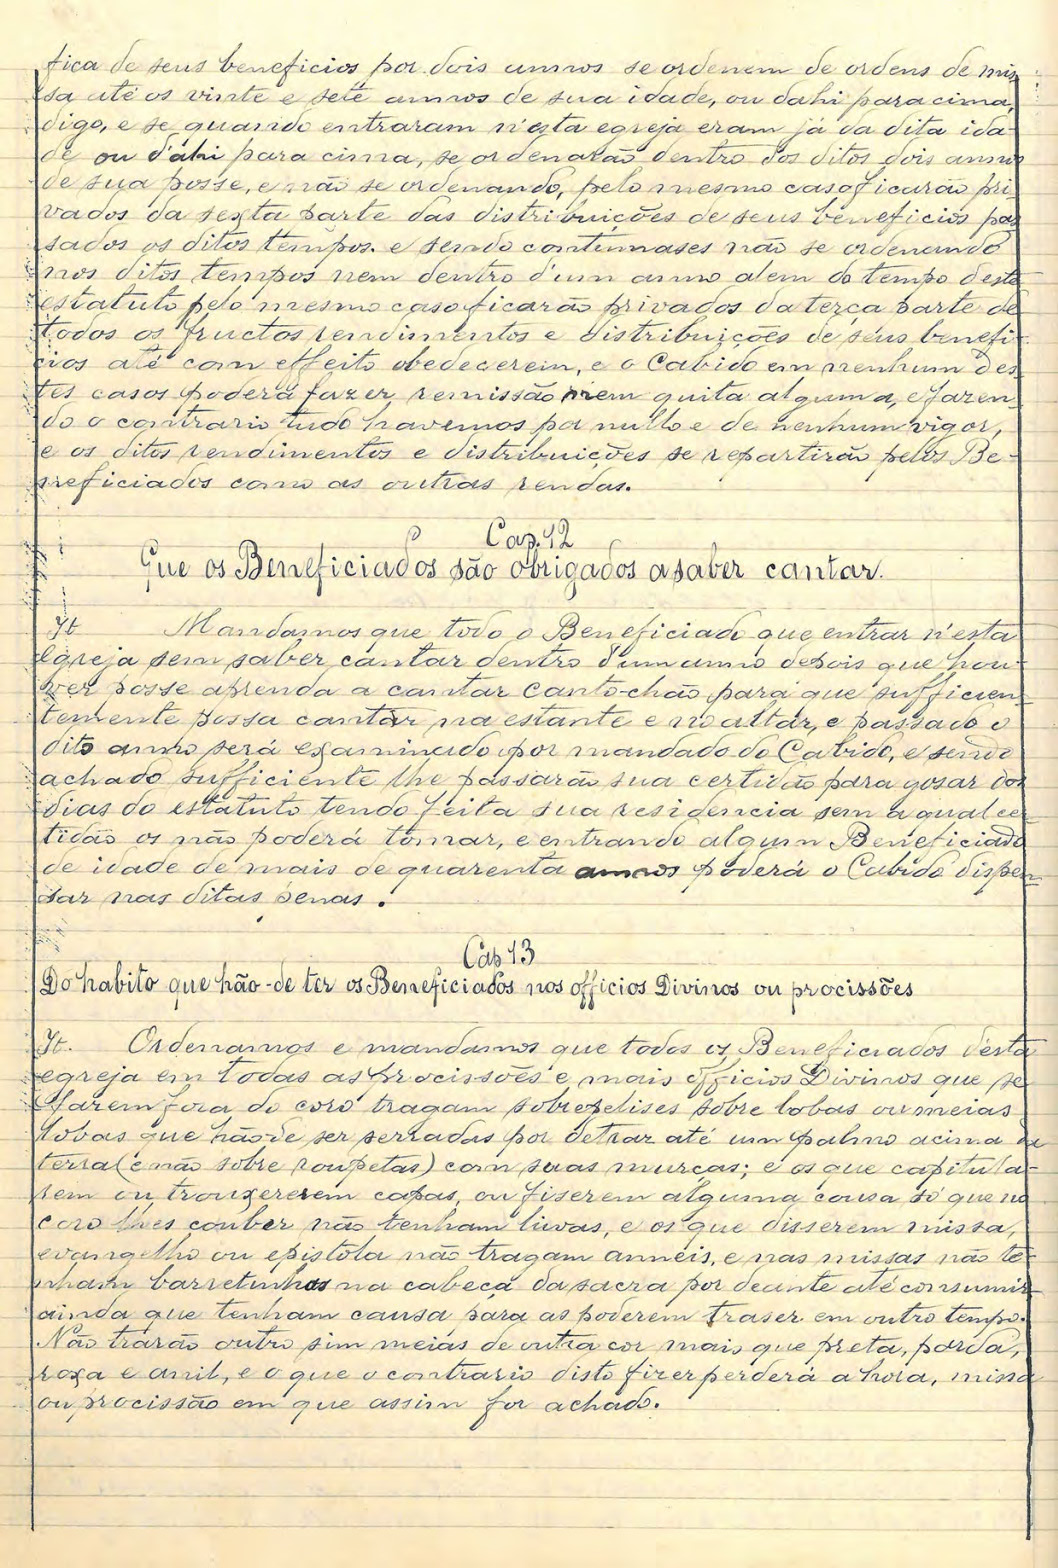 fica de seus beneficios por dois annos se ordenem de ordens de mis
sa até os vinte e sete annos de sua idade, ou dahi para cima,
digo, e se quando entraram n'esta egreja eram já da dita ida-
de ou d'ahi para cima, se ordenarão dentro dos ditos dois annos
de sua posse, e não se ordenando, pelo mesmo caso ficarão pri-
vados da sexta parte das distribuições de seus beneficios pas
sados os ditos tempos. e sendo contumases não se ordenando
nos ditos tempos nem dentro d'um anno alem do tempo deste
estatuto pelo mesmo caso ficarão privados da terça parte de
todos os fructos rendimentos e distribuições de seus benefi-
cios até com effeito obedecerem, e o Cabido em nenhum des-
tes casos poderá fazer remissão nem quita alguma, e fazen-
do o contrario tudo havemos por nullo e de nenhum vigor,
e os ditos rendimentos e distribuições se repartirão pelos Be-
neficiados como as outras rendas.
Cap. 12
Que os Beneficiados são obrigados a saber cantar.
It Mandamos que todo o Beneficiado que entrar n'esta
Egreja sem saber cantar dentro d'um anno depois que hou-
ver posse aprenda a cantar canto-chão para que sufficien-
temente possa cantar na estante e no altar, e passado o
dito anno será examinado por mandado do Cabido, e sendo
achado sufficiente lhe passarão sua certidão para gosar dos
dias do estatuto tendo feita sua residencia sem a qual cer
tidão os não poderá tomar, e entrando algum Beneficiado
de idade de mais de quarenta annos poderá o Cabido dispen-
sar nas ditas penas.
Cap 13
Do habito que hão-de ter os Beneficiados nos officios Divinos ou procissões
It. Ordenamos e mandamos que todos os Beneficiados d'esta
egreja em todas as procissões e mais officios Divinos que se
farem fora do coro tragam sobrepelises sobre lobas ou meias
lobas que hão de ser serradas por detraz até um palmo acima da
terra (e não sobre roupetas) com suas murças; e os que capitula-
rem ou trouxererem capas, ou fiserem alguma cousa só que no
coro lhes couber não tenham luvas, e os que disserem missa,
evangelho ou epistola não tragam anneis, e nas missas não te-
nham barretinhos na cabeça da sacra por deante até consumir
ainda que tenham causa para as poderem traser em outro tempo.
Não trarão outro sim meias de outra cor mais que preta, parda,
roxa e anil, e o que o contrario disto fizer perderá a hora, missa
ou procissão em que assim for achado.